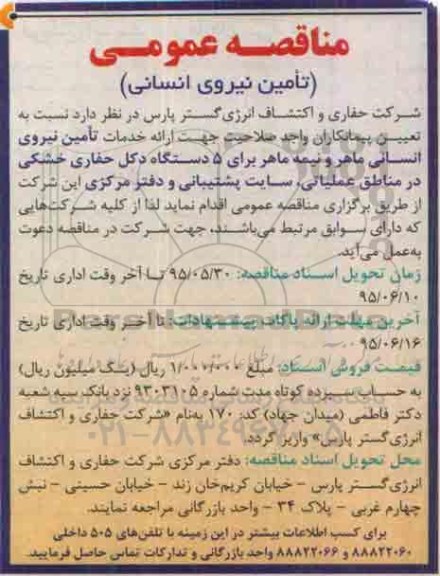 مناقصه عمومی
(تأمین نیروی انسانی)
شرکت حفاری و اکتشاف انرژی‌گستر پارس در نظر دارد نسبت به
تعیین پیمانکاران واجد صلاحیت جهت ارائه خدمات تأمین نیروی
انسانی ماهر و نیمه ماهر برای ۵ دستگاه دکل حفاری خشکی
در مناطق عملیاتی، سایت پشتیبانی و دفتر مرکزی این شرکت
از طریق برگزاری مناقصه عمومی اقدام نماید لذا از کلیه شرکت‌هایی
که دارای سوابق مرتبط می‌باشند، جهت شرکت در مناقصه دعوت
به‌عمل می‌آید.
زمان تحویل اسناد مناقصه: ۹۵/۰۵/۳۰ تا آخر وقت اداری تاریخ
۹۵/۰۶/۱۰
آخرین مهلت ارائه پاکات پیشنهادات: تا آخر وقت اداری تاریخ
۹۵/۰۶/۱۶
قیمت فروش اسناد: مبلغ ۱/۰۰۰/۰۰۰ ریال (یک میلیون ریال)
به حساب سپرده کوتاه مدت شماره ۹۳۰۳۱۰۵ نزد بانک سپه شعبه
دکتر فاطمی (میدان جهاد) کد: ۱۷۰ به‌نام «شرکت حفاری و اکتشاف
انرژی‌گستر پارس» واریز گردد.
محل تحویل اسناد مناقصه: دفتر مرکزی شرکت حفاری و اکتشاف
انرژی‌گستر پارس – خیابان کریم‌خان زند – خیابان حسینی – نبش
چهارم غربی – پلاک ۳۴ – واحد بازرگانی مراجعه نمایند.
برای کسب اطلاعات بیشتر در این زمینه با تلفن‌های ۵۰۵ داخلی
۸۸۸۲۲۰۶۰ و ۸۸۸۲۲۰۶۶ واحد بازرگانی و تدارکات تماس حاصل فرمایید.
۰۲۱-۸۸۳۴۹۶۷۰-۵